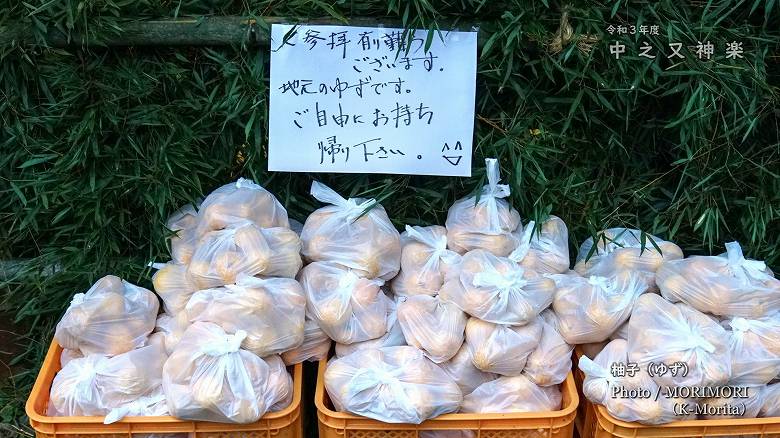 参拝有難う
ございます。
地元のゆずです。
ご自由にお持ち
帰り下さい。
令和3年度
中之又神楽
柚子（ゆず）
Photo / MORIMORI
（K-Morita）